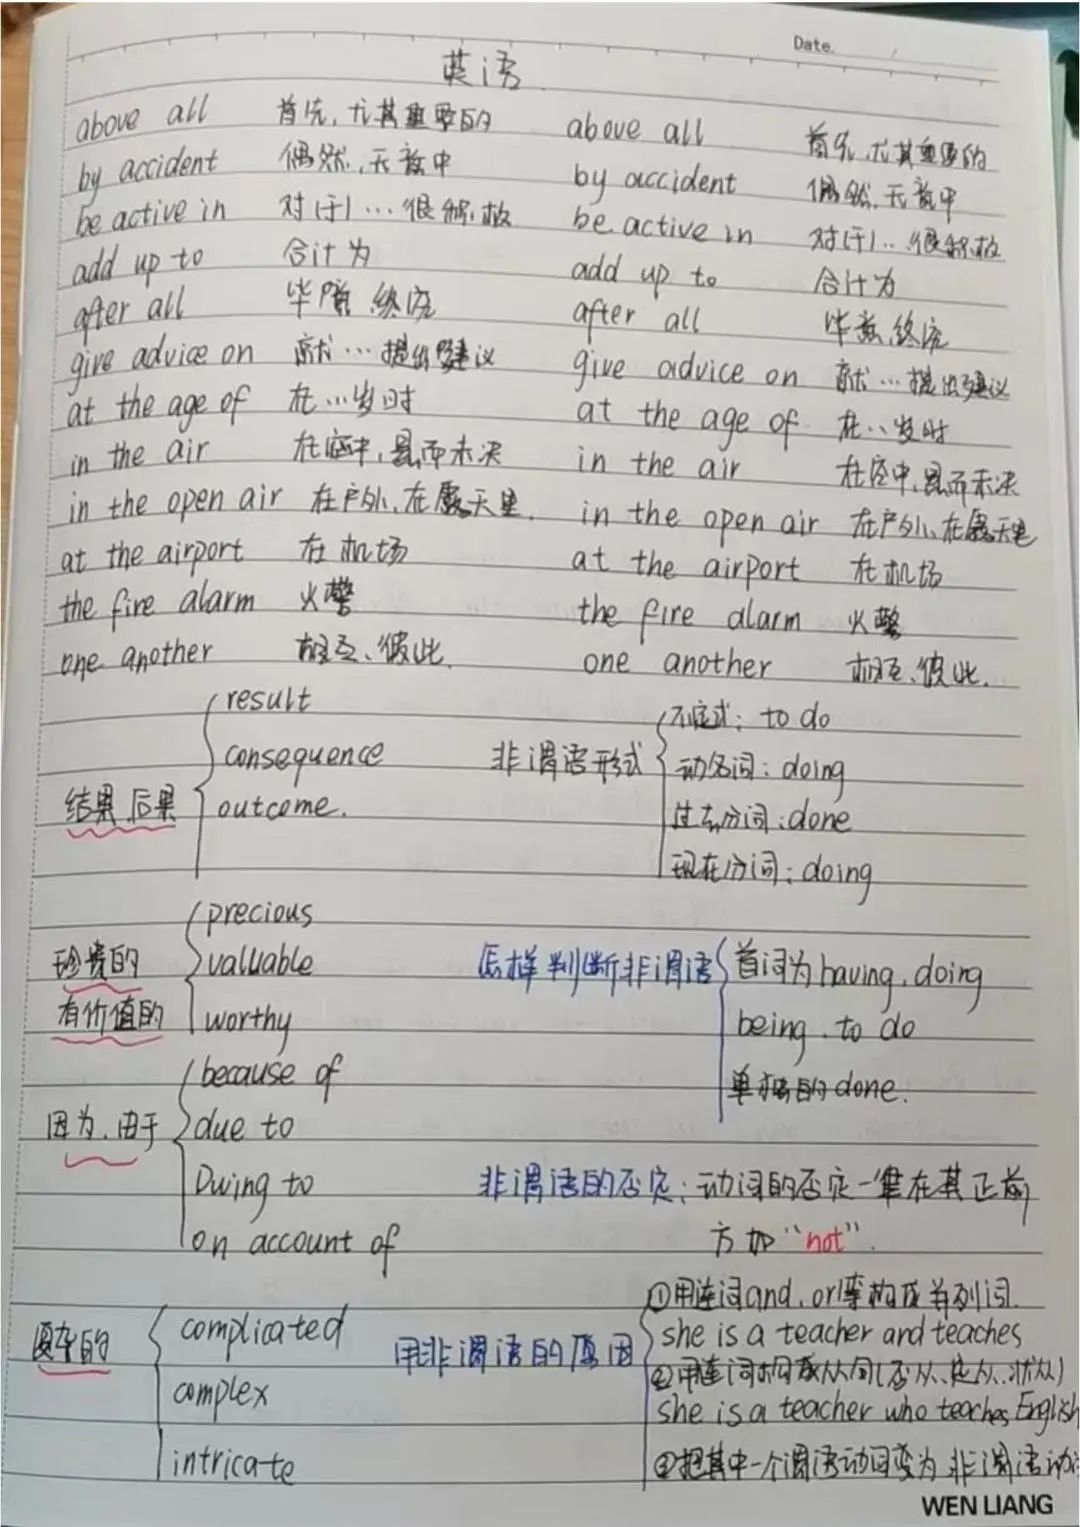 Date.
英语
above all 首先,尤其重要的 above all 首先,尤其重要的
by accident 偶然,无意中 by accident 偶然,无意中
be active in 对(于)…很积极 be active in 对(于)…很积极
add up to 合计为 add up to 合计为
after all 毕竟,终究 after all 毕竟,终究
give advice on 就…提出建议 give advice on 就…提出建议
at the age of 在…岁时 at the age of 在…岁时
in the air 在空中,悬而未决 in the air 在空中,悬而未决
in the open air 在户外,在露天里. in the open air 在户外,在露天里
at the airport 在机场 at the airport 在机场
the fire alarm 火警 the fire alarm 火警
one another 相互、彼此. one another 相互、彼此.
结果.后果
result
consequence
outcome.
非谓语形式
不定式: to do
动名词: doing
过去分词: done
现在分词: doing
珍贵的
有价值的
precious
valuable
worthy
怎样判断非谓语
首词为having.doing
being.to do
单独的done.
因为.由于
because of
due to
Owing to
on account of
非谓语的否定:动词的否定一律在其正前
方加“not”.
复杂的
complicated
complex
intricate
用非谓语的原因
①用连词and.or等构成并列词.
she is a teacher and teaches
②用连词构成从句(名从、定从、状从)
she is a teacher who teaches English
③把其中一个谓语动词变为非谓语动
WEN LIANG